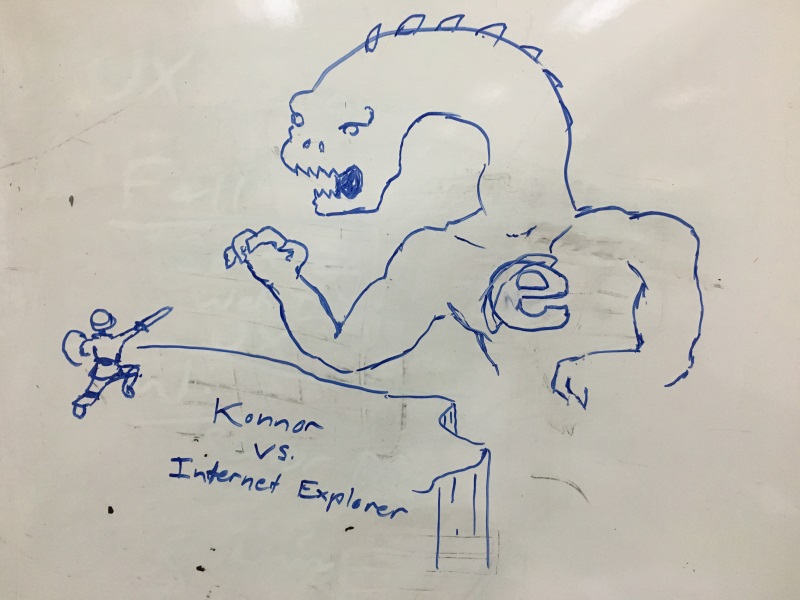 UX
e
Konnor
vs.
Internet Explorer